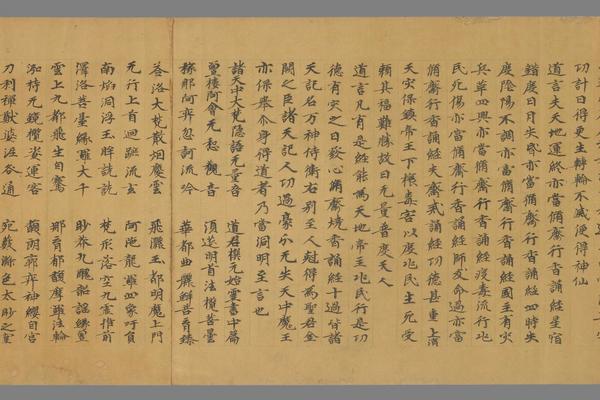 功計日得更生轉輪不滅便得神仙
道言夫天地運終亦當脩齋行香誦經星宿
錯度日月失昏亦當脩齋行香誦經四時失
度陰陽不調亦當脩齋行香誦經國主有灾
兵革四興亦當脩齋行香誦經疫毒流行兆
民死傷亦當脩齋行香誦經師友命過亦當
脩齋行香誦經夫齋戒誦經功德甚重上消
天灾保鎮帝王下攘毒害以度兆民生死受
賴其福難勝故曰无量普度天人
道言凡有是經能爲天地帝王兆民行是功
德有灾之日發心脩齋燒香誦經十過皆諸
天記名万神侍衛右別至人尅得爲聖君金
闕之臣諸天記人功過豪分无失天中魔王
亦保舉尒身得道者乃當洞明至言也
諸天中大梵隱語无量音 道君撰元始靈書中篇
亶婁阿會无惒觀音 須延明首法攬菩曇
稼那阿弈忽訶流吟 華都曲麗鮮菩育臻
荅洛大梵散烟慶雲 飛灑玉都明魔上門
无行上首迴蹠流玄 阿陁龍羅四象吁員
南焰洞浮玉眸詵詵 梵形落空九靈推前
澤洛菩臺緣羅大千 眇莽九醜韶謠緣邅
雲上九都飛生自騫 那育郁馥摩羅法輪
持无鏡攬姿運容 馥朗廓弈神纓自宮
刀利禪猷婆泥咎通 宛藪滌色太眇之堂